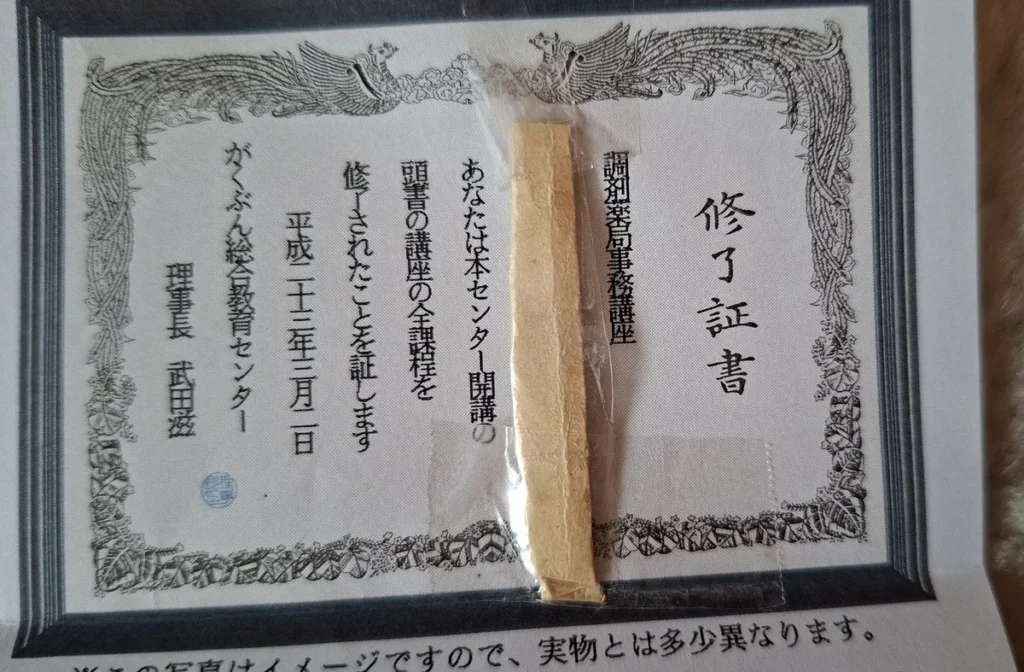 修了証書
調剤薬局事務講座
あなたは本センター開講の
頭書の講座の全課程を
修了されたことを証します
平成二十三年三月二日
がくぶん総合教育センター
理事長 武田滋
※この写真はイメージですので、実物とは多少異なります。